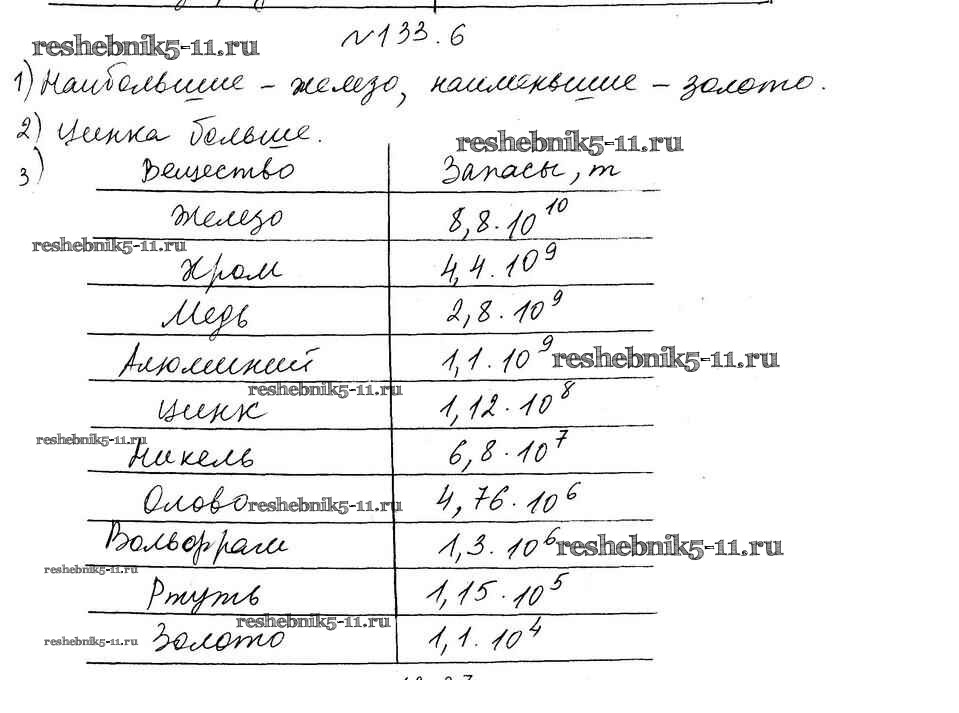 №133.6
reshebnik5-11.ru
1) Наибольшие – железо, наименьшие – золото.
2) Цинка больше.
reshebnik5-11.ru
3)
Вещество Запасы, т
Железо 8,8·10^10
reshebnik5-11.ru
Хром 4,4·10^9
Медь 2,8·10^9
Алюминий 1,1·10^9 reshebnik5-11.ru
reshebnik5-11.ru
Цинк 1,12·10^8
reshebnik5-11.ru
Никель 6,8·10^7
Олово reshebnik5-11.ru 4,76·10^6
Вольфрам 1,3·10^6 reshebnik5-11.ru
reshebnik5-11.ru
Ртуть 1,15·10^5
reshebnik5-11.ru
reshebnik5-11.ru Золото 1,1·10^4